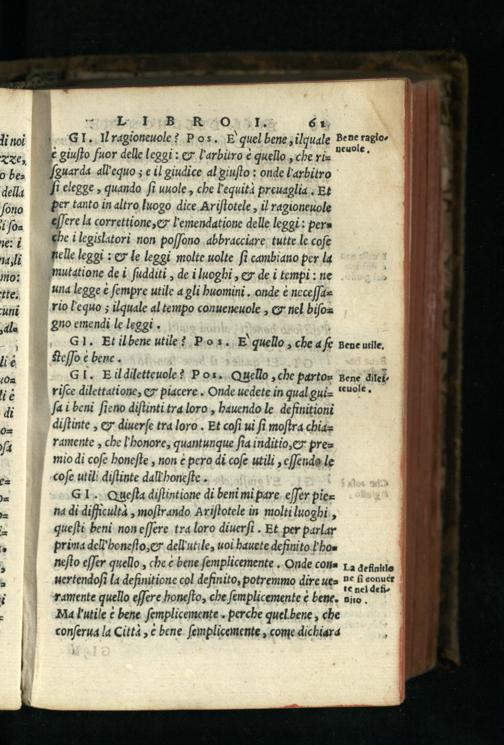 LIBRO I. 61
GI. Il ragioneuole? Pos. E' quel bene, ilquale
è giusto fuor delle leggi: & l'arbitro è quello, che ri=
sguarda all'equo; e il giudice al giusto: onde l'arbitro
si elegge, quando si uuole, che l'equità preuaglia. Et
per tanto in altro luogo dice Aristotele, il ragioneuole
essere la correttione, & l'emendatione delle leggi: per=
che i legislatori non possono abbracciare tutte le cose
nelle leggi: & le leggi molte uolte si cambiano per la
mutatione de i sudditi, de i luoghi, & de i tempi: ne
una legge è sempre utile a gli huomini. onde è necessa=
rio l'equo; ilquale al tempo conueneuole, & nel biso=
gno emendi le leggi.
GI. Et il bene utile? Pos. E' quello, che a se
stesso è bene.
GI. E il diletteuole? Pos. Quello, che parto=
risce dilettatione, & piacere. Onde uedete in qual gui=
sa i beni sieno distinti tra loro, hauendo le definitioni
distinte, & diuerse tra loro. Et così ui si mostra chia=
ramente, che l'honore, quantunque sia inditio, & pre=
mio di cose honeste, non è però di cose utili, essendo le
cose utili distinte dall'honeste.
GI. Questa distintione di beni mi pare esser pie=
na di difficultà, mostrando Aristotele in molti luoghi,
questi beni non essere tra loro diuersi. Et per parlar
prima dell'honesto, & dell'utile, uoi hauete definito l'ho=
nesto esser quello, che è bene semplicemente. Onde con=
uertendosi la definitione col definito, potremmo dire ue=
ramente quello essere honesto, che semplicemente è bene.
Ma l'utile è bene semplicemente. perche quel bene, che
conserua la Città, è bene semplicemente, come dichiara
Bene ragio=
neuole.
Bene utile.
Bene dilet=
teuole.
La definitio
ne si conuer
te nel defi=
nito.
di noi
ezze,
o be=
della
sono
si so=
ne: i
na, li
mo:
ette.
cuni
, al=
li è
uo=
li è
di